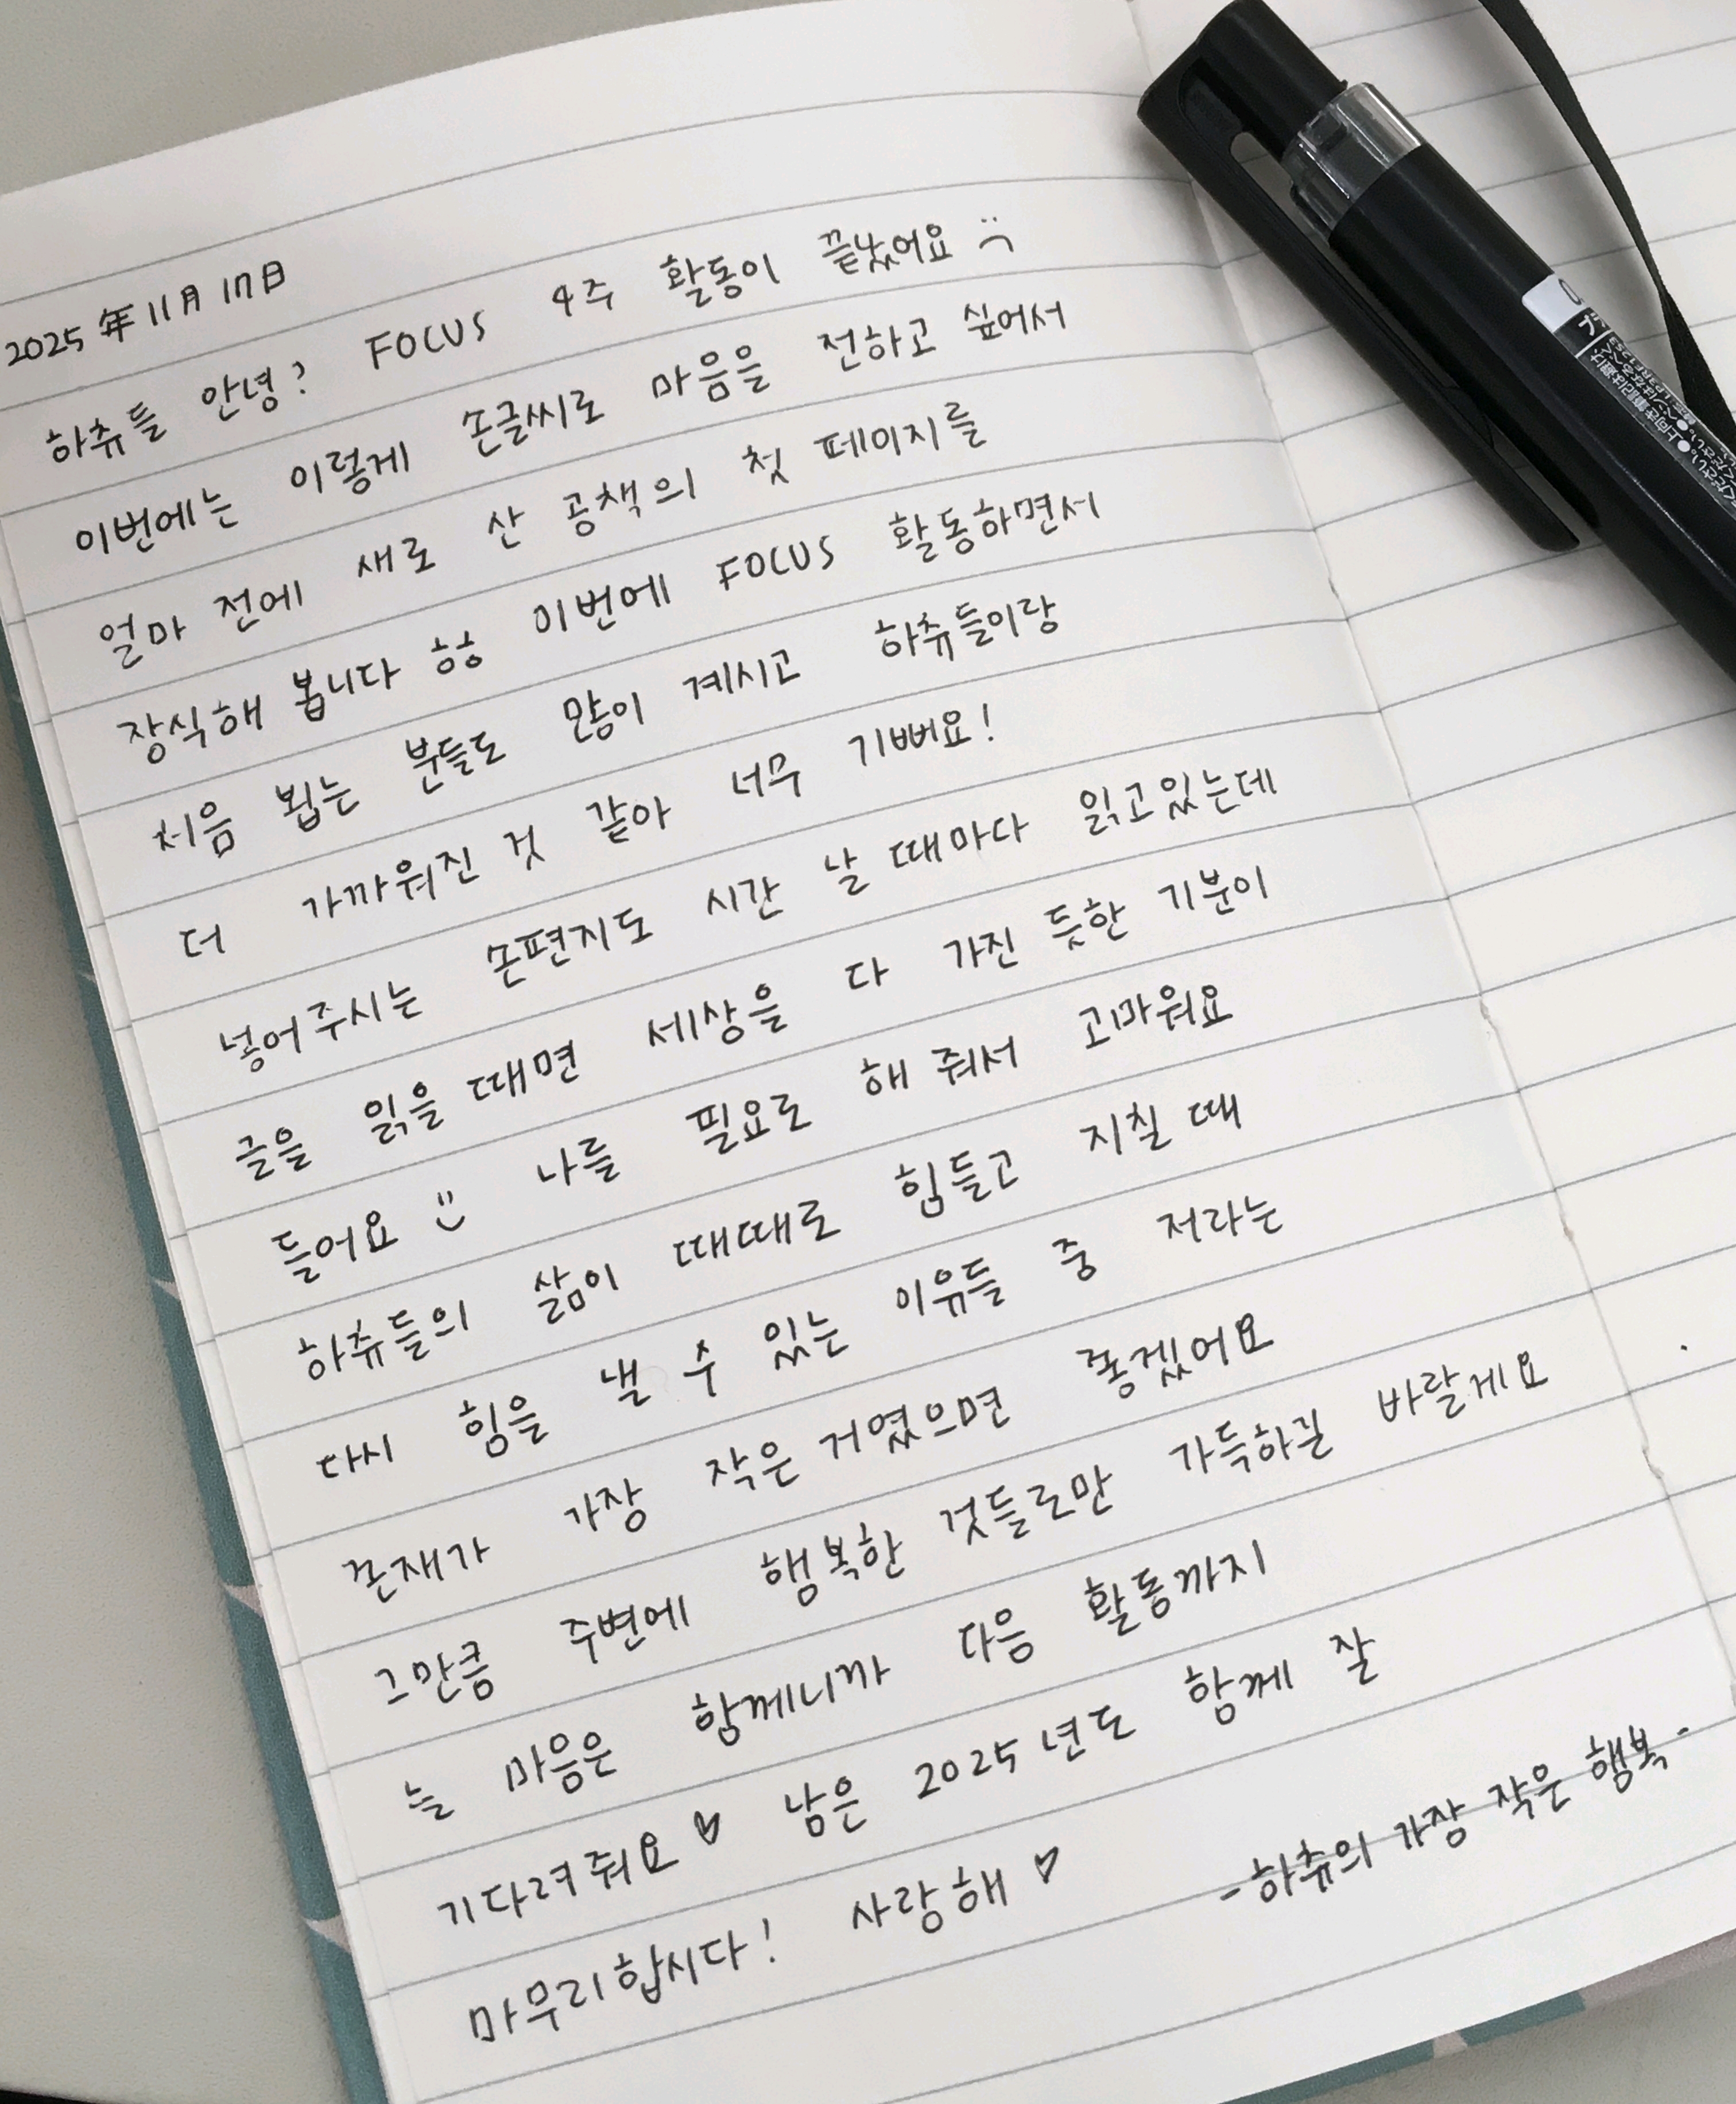 2025年11月17日
하츄들 안녕? FOCUS 4주 활동이 끝났어요
이번에는 이렇게 손글씨로 마음을 전하고 싶어서
얼마 전에 새로 산 공책의 첫 페이지를
장식해 봅니다 ㅎㅎ 이번에 FOCUS 활동하면서
처음 뵙는 분들도 많이 계시고 하츄들이랑
더 가까워진 것 같아 너무 기뻐요!
넣어주시는 손편지도 시간 날 때마다 읽고있는데
글을 읽을 때면 세상을 다 가진 듯한 기분이
들어요 나를 필요로 해 줘서 고마워요
하츄들의 삶이 때때로 힘들고 지칠 때
다시 힘을 낼 수 있는 이유들 중 저라는
존재가 가장 작은 거였으면 좋겠어요
그만큼 주변에 행복한 것들로만 가득하길 바랄게요
늘 마음은 함께니까 다음 활동까지
기다려줘요♡ 남은 2025년도 함께 잘
마무리합시다! 사랑해♡
-하츄의 가장 작은 행복-